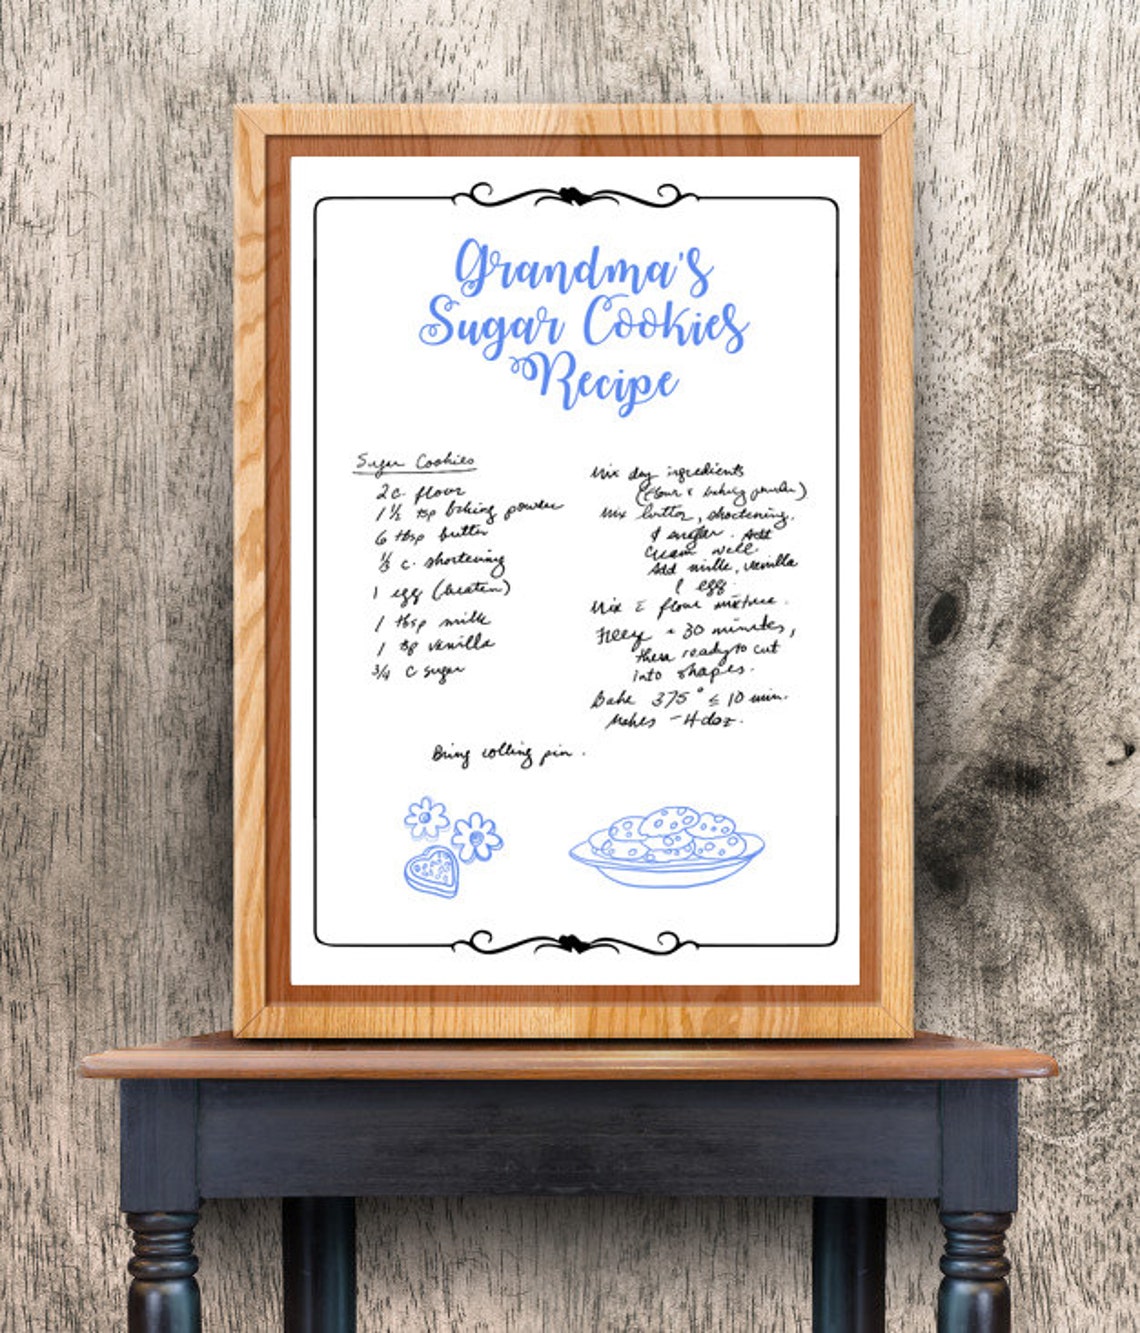 Grandma's
Sugar Cookies
Recipe
Sugar Cookies
2 c. flour
1 ½ tsp baking powder
6 tbsp butter
⅓ c. shortening
1 egg (beaten)
1 tbsp milk
1 tsp vanilla
¾ c sugar
Mix dry ingredients
(flour & baking powder)
Mix butter, shortening,
& sugar. Add
Cream well
Add milk, vanilla
& egg.
Mix c̄ flour mixture.
30 minutes,
then ready to cut
into shapes.
Bake 375° ≤ 10 min.
Makes - 4 doz.
Bring rolling pin.